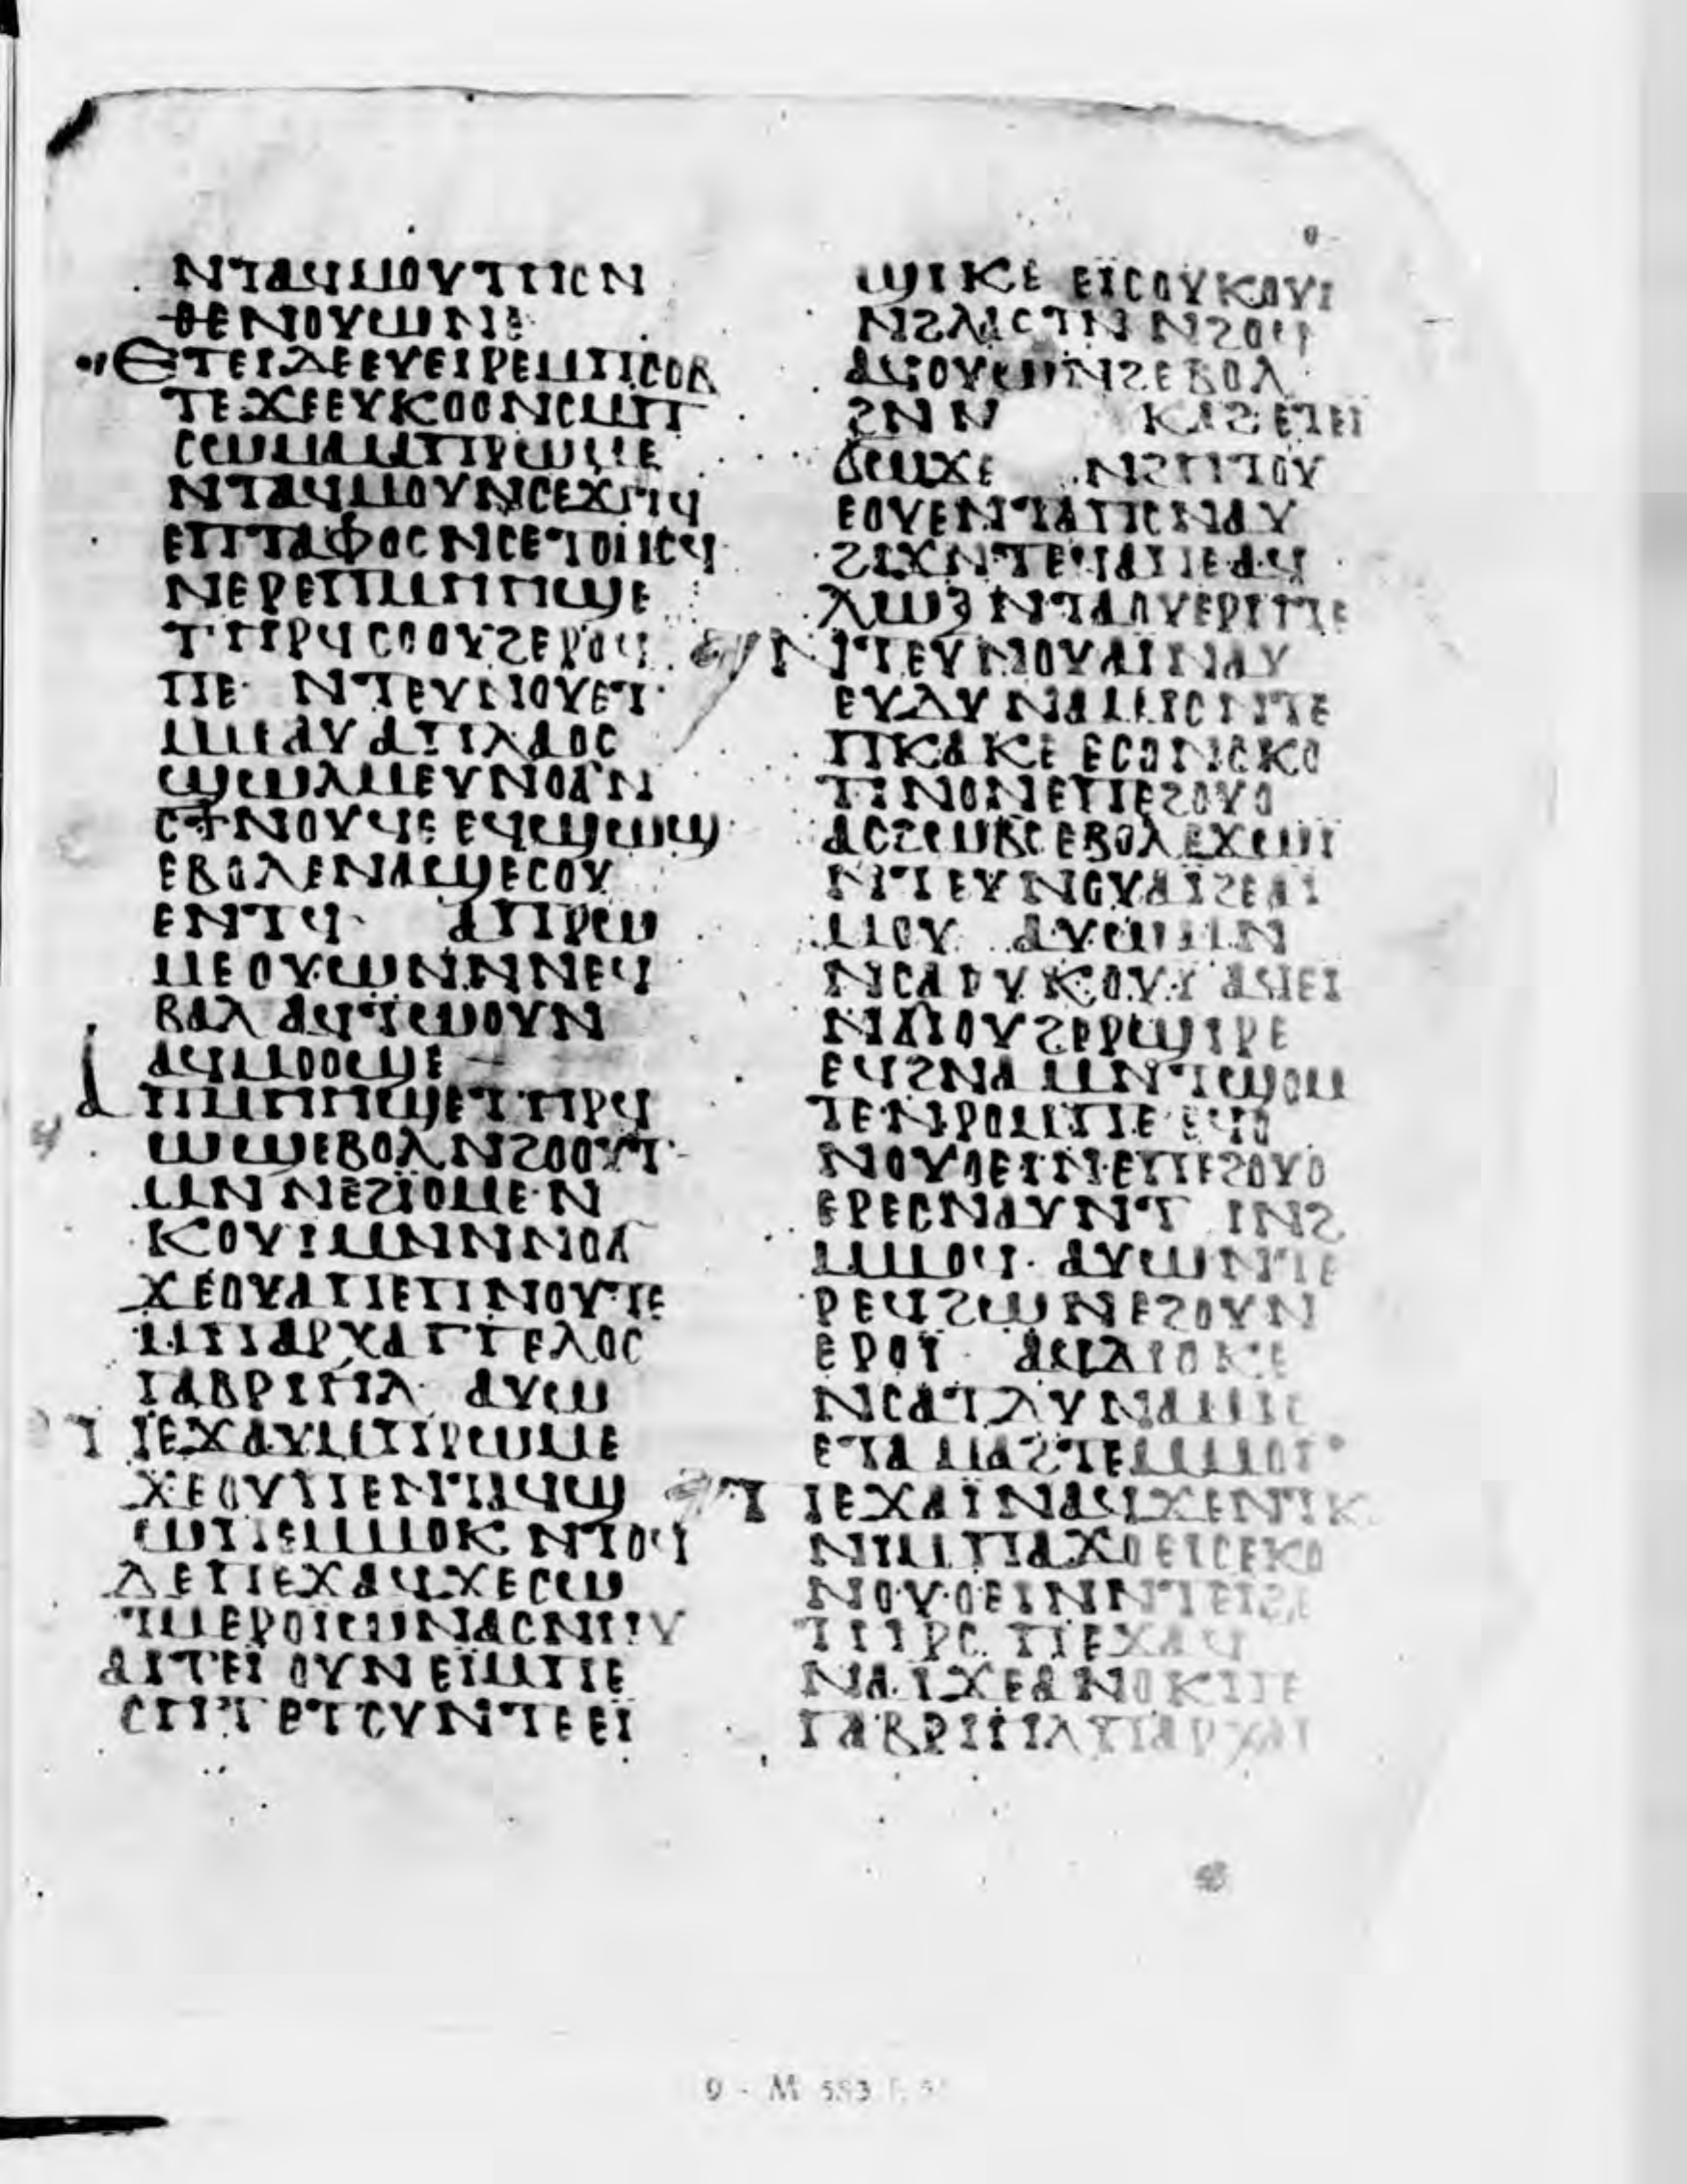 ⲛⲧⲁϥⲙⲟⲩ ⲧⲏⲥ ⲛ
ⲑⲉ ⲛⲟⲩⲱⲛⲉ
ⲉⲧⲉⲓ ⲇⲉ ⲉⲩⲉⲓⲣⲉ ⲙⲡⲥⲟⲃ
ⲧⲉ ϫⲉ ⲉⲩⲕⲟⲟⲛⲥ ⲙⲡ
ⲥⲱⲙⲁ ⲙⲡⲣⲱⲙⲉ
ⲛⲧⲁϥⲙⲟⲩ ⲛⲥⲉϫⲓⲧϥ
ⲉⲡⲧⲁⲫⲟⲥ ⲛⲥⲉⲧⲟⲙⲥϥ
ⲛⲉⲣⲉⲡⲙⲏⲏϣⲉ
ⲧⲏⲣϥ ⲥⲟⲟⲩϩ ⲉⲣⲟϥ
ⲡⲉ· ⲛⲧⲉⲩⲛⲟⲩ ⲉⲧ
ⲙⲙⲁⲩ ⲁⲡⲗⲁⲟⲥ
ϣⲱⲗⲙ ⲉⲩⲛⲟϭ ⲛ
ⲥϯⲛⲟⲩϥⲉ ⲉϥϣⲱϣ
ⲉⲃⲟⲗ ⲉⲛⲁϣⲉⲥⲟⲩ
ⲉⲛⲧϥ· ⲁⲡⲣⲱ
ⲙⲉ ⲟⲩⲱⲛ ⲛⲛⲉϥ
ⲃⲁⲗ ⲁϥⲧⲱⲟⲩⲛ
ⲁϥⲙⲟⲟϣⲉ
ⲁⲡⲙⲏⲏϣⲉ ⲧⲏⲣϥ
ⲱϣ ⲉⲃⲟⲗ ⲛϩⲟⲟⲩⲧ
ⲙⲛ ⲛⲉϩⲓⲟⲙⲉ ⲛ
ⲕⲟⲩⲓ ⲙⲛ ⲛⲛⲟϭ
ϫⲉ ⲟⲩⲁ ⲡⲉ ⲡⲛⲟⲩⲧⲉ
ⲙⲡⲁⲣⲭⲁⲅⲅⲉⲗⲟⲥ
ⲅⲁⲃⲣⲓⲏⲗ· ⲁⲩⲱ
ⲡⲉϫⲁⲩ ⲙⲡⲣⲱⲙⲉ
ϫⲉ ⲟⲩ ⲡⲉⲛⲧⲁϥϣ
ⲱⲡⲉ ⲙⲙⲟⲕ ⲛⲧⲟϥ
ⲇⲉ ⲡⲉϫⲁϥ ϫⲉ ⲥⲱ
ⲧⲙ ⲉⲣⲟⲓ ⲱ ⲛⲁⲥⲛⲏⲩ
ⲁⲓⲧⲉⲓ ⲟⲩⲛ ⲉⲓⲙⲡⲉ
ⲥⲏⲧ ⲉⲧⲥⲩⲛⲧⲉ ⲉⲓ
ϣⲓⲕⲉ ⲉⲓⲥ ⲟⲩⲕⲟⲩⲓ
ⲁϥⲟⲩⲱⲛϩ ⲉⲃⲟⲗ
ⲉⲟⲩⲉⲛⲧⲁⲡⲥⲛⲁⲩ
ϩⲓϫⲛ ⲧⲉϥⲁⲡⲉ ⲁϥ
ⲛⲧⲉⲩⲛⲟⲩ ⲁⲓⲛⲁⲩ
ⲉⲩⲇⲩⲛⲁⲙⲓⲥ ⲛⲧⲉ
ⲡⲕⲁⲕⲉ ⲉⲥⲟ ⲛⲥⲕⲟ
ⲧⲓⲛⲟⲛ ⲉⲡⲉϩⲟⲩⲟ
ⲁⲥϩⲱⲃⲥ ⲉⲃⲟⲗ ⲉϫⲱⲓ
ⲛⲧⲉⲩⲛⲟⲩ ⲁⲓϩⲉ ⲁⲓ
ⲙⲟⲩ· ⲁⲩⲱ ⲙⲛ
ⲛⲥⲁ ⲟⲩⲕⲟⲩⲓ ⲁϥⲉⲓ
ⲛⲁⲓ ⲟⲩϩⲣϣⲓⲣⲉ
ⲧⲉ ⲛⲣⲟⲙⲡⲉ ⲉϥⲟ
ⲛⲟⲩⲟⲉⲓⲛ ⲉⲡⲉϩⲟⲩⲟ
ⲙⲙⲟϥ· ⲁⲩⲱ ⲛⲧⲉ
ⲣⲉϥϩⲱⲛ ⲉϩⲟⲩⲛ
ⲉⲣⲟⲓ ⲁϥⲇⲓⲱⲕⲉ
ⲛⲥⲁ ⲧⲇⲩⲛⲁⲙⲓⲥ
ⲉⲧⲁⲙⲁϩⲧⲉ ⲙⲙⲟⲓ
ⲡⲉϫⲁⲓ ⲛⲁϥ ϫⲉ ⲛⲧⲕ
ⲛⲓⲙ ⲡⲁϫⲟⲉⲓⲥ ⲉⲕⲟ
ⲛⲟⲩⲟⲉⲓⲛ ⲛⲧⲉⲓϩⲉ
ⲧⲏⲣⲥ ⲡⲉϫⲁϥ
ⲛⲁⲓ ϫⲉ ⲁⲛⲟⲕ ⲡⲉ
ⲅⲁⲃⲣⲓⲏⲗ ⲡⲁⲣⲭⲁⲅ